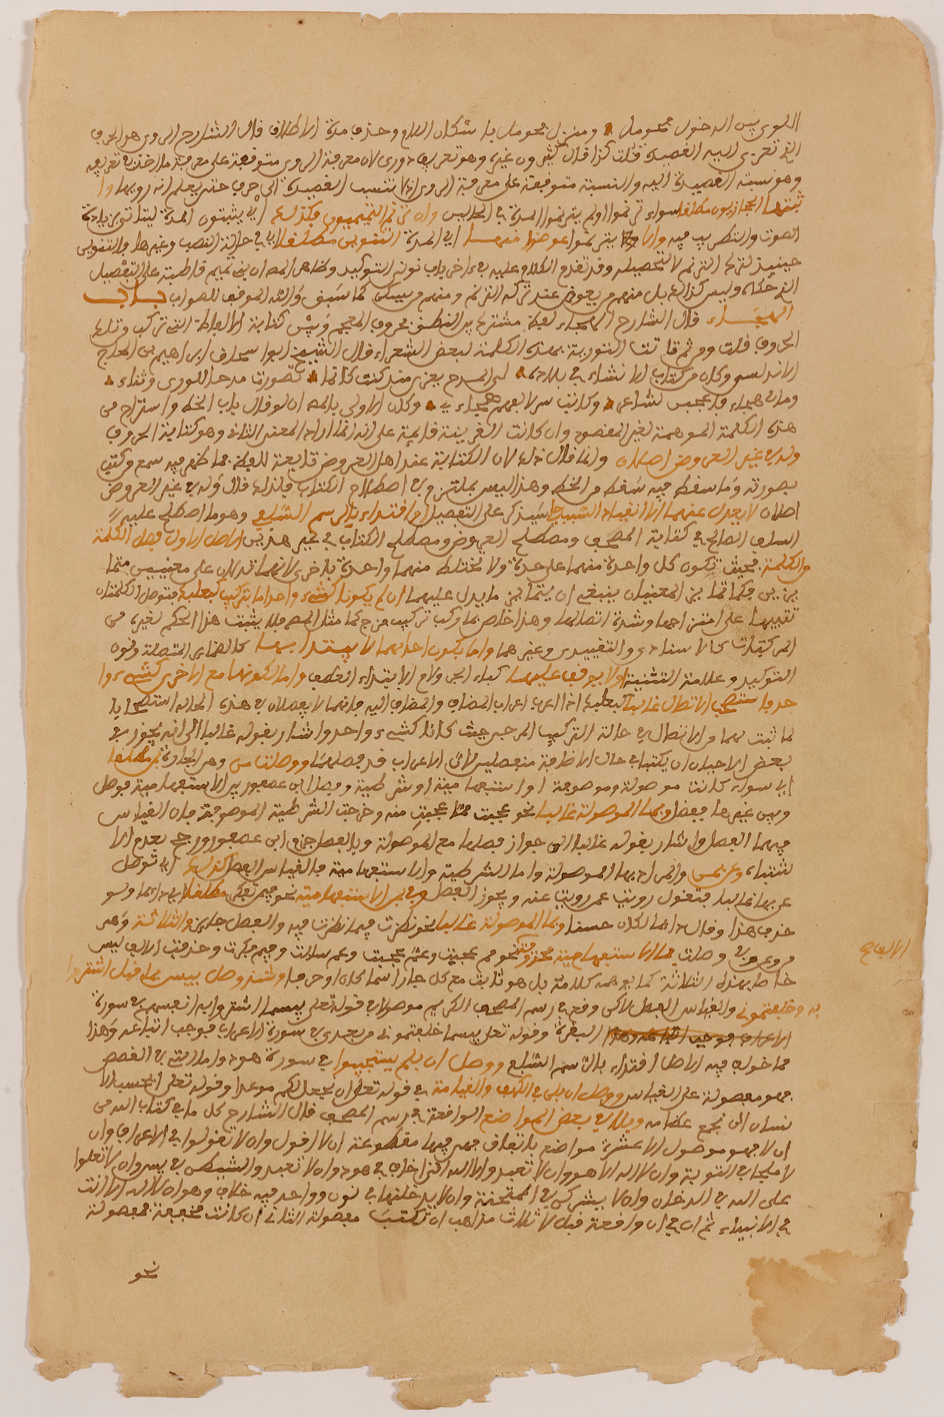 اللوى بين الدخول فحومل ومنزل فحومل باسكان اللام وحذف مدة الاطلاق قال الشارح الروي هو الحرف
الذي تعزى اليه القصيدة قلت كذا قال كثيرون غيره وهو تعريف دوري لان معرفة الروي متوقفة على معرفة ما اخذ في تعريفه
وهو نسبة القصيدة اليه والنسبة متوقفة على معرفة الروي اذ لا تنسب القصيدة الى حرف حتى يعلم انه رويها
يثبتها الحجازيون مطلقا سواء ترنموا او لم يترنموا المدة في الحالين وان ترنم التميميون فكذلك اي يثبتون المدة ليتأتى زيادة
الصوت والتطريب فيه والا يترنموا عوضوا منها اي المدة التنوين مطلقا اي في حالة النصب وغيرها والتنوين
حينئذ لترك الترنم لا لتحصيله وقد تقدم الكلام عليه في اخر باب نوني التوكيد وظاهر المص ان بني تميم قاطبة على التفصيل
الذي حكاه وليس كذلك بل منهم من يعوض عند تركه الترنم ومنهم من يسكن كما سبق والله الموفق للصواب باب
الهجاء قال الشارح الهجاء لغة مشترك بين النطق بحروف المعجم وبين كتابة الالفاظ التي تركب من تلك
الحروف قلت ومن ثم تأتت التورية بهذه الكلمة لبعض الشعراء قال الشيخ ابو اسحاق ابراهيم بن الحاج
الاندلسي وكان من كتاب الانشاء في بلاده لي المدح يعزى منذ كنت كانما تصورت مدحا للورى وثناء
وما لي هجاء فاعجبن لشاعر وكاتب سر لا يقيم هجاء وكان الاولى بالمص ان لو قال باب الخط واستراح من
هذه الكلمة الموهمة لغير المقصود وان كانت القرينة قائمة على انه انما اراد المعنى الثاني وهو كتابة الحروف
وله في غير العروض اصلان وانما قال ذلك لان الكتابة عند اهل العروض تابعة للفظ فما ظهر فيه سمع وكتب
بصورته وما سقط فيه سقط من الخط وهذا ليس بملتزم في اصطلاح الكتاب فلذلك قال وله في غير العروض
اصلان لا يعدل عنهما الا انقيادا لسبب سيذكر على التفصيل او اقتداء بالرسم السابق وهو ما اصطلح عليه
السلف الصالح في كتابة المصحف ومصطلح العروض ومصطلح الكتاب في غير هذين الاصل الاول فصل الكلمة
من الكلمة بحيث تكون كل واحدة منهما على حدة ولا تختلط منهما واحدة بالاخرى لانهما تدلان على معنيين متما
يزين فكما تمايز المعنيان ينبغي ان يتمايز ما يدل عليهما ان لم يكونا كشيء واحد اما بتركيب كبعلبك فتوصل الكلمتان
تنبيها على امتزاجهما وشدة اتصالهما وهذا خاص بما ركب تركيب مزج كما مثل المص فلا يثبت هذا الحكم لغيره من
المركبات كالاسنادي والتقييدي وغيرهما واما بكون احداهما لا يبتدا بها كالضمائر المتصلة ونون
التوكيد وعلامة التثنية او لا يوقف عليها كباء الجر ولام الابتداء واما لكونها مع الاخرى كشيء وا
حد فاستصحب الاتصال غالبا كبعلبك اذا اعرب اعراب المضاف والمضاف اليه فانهما لا يفصلان في هذه الحالة استصحابا
لما ثبت لهما من الاتصال في حالة التركيب المزجي حيث كانا كشيء واحد واشار بقوله غالبا الى انه يجوز في
بعض الاحيان ان يكتبا في حال الاضافة منفصلين لان الاعراب قد فصلهما ووصلت من وهي الجارة بمن مطلقا
اي سواء كانت موصولة وموصوفة او استفهامية او شرطية وفصل ابن عصفور بين الاستفهامية فوصل
وبين غيرها ففصل وبما الموصولة غالبا نحو عجبت مما عجبت منه وخرجت الشرطية الموصوفة فان القياس
فيهما الفصل واشار بقوله غالبا الى جواز فصلها مع الموصولة وبالفصل جزم ابن عصفور ورجح بعدم الا
شتباه وعن بمن والمراد بها الموصولة واما الشرطية والاستفهامية فالقياس الفصل كذلك اي توصل
عن بها غالبا فتقول رويت عمن رويت عنه ويجوز الفصل وفي بمن الاستفهامية نحو فيمن تفكر مطلقا اي دائما ولو
حذف هذا وقال دائما لكان حسنا وبما الموصولة غالبا نحو نظرت فيما نظرت فيه والفصل جائز والثلاثة وهي
من وعن وفي وصلت بما الاستفهامية محذوفة نحو مم تعجبت وعم تعجبت وعم سالت وفيم فكرت وحذفت الالف ليس
خاصا بهذه الثلاثة كما يوهمه كلامه بل هو ثابت مع كل جار اسما كان او حرفا وشذ وصل بيس بما قبل اشتروا
به وخلفتموني والقياس الفصل لكن وقع في رسم المصحف الكريم موصولا في قوله تعلى بيسما اشتروا به انفسهم في سورة
البقرة وقوله تعلى بيسما خلفتموني من بعدي في سورة الاعراف فوجب اتباعه وهذا
مما خولف فيه الاصل اقتداء بالرسم السابق ووصل ان بلم يستجيبوا في سورة هود واما التي في القصص
فهو مفصولة على القياس ووصل ان بلن في الكهف والقيامة في قوله تعلى ان نجعل لكم موعدا وقوله تعلى ايحسب الا
نسان الن نجمع عظامه وبلا في بعض المواضع الواقعة في رسم المصحف قال الشارح كل ما في كتاب الله من
ان لا فهو موصول الا عشرة مواضع باتفاق فهي فيها مقطوعة ان لا اقول وان لا تقولوا في الاعراف وان
لا ملجا في التوبة وان لا اله الا هو وان لا تعبدوا الا الله اخراني في هود وان لا تعبدوا الشيطان في يس وان لا تعلوا
على الله في الدخان وان لا يشركن في الممتحنة وان لا يدخلنها في نون وواحد فيه خلاف وهو ان لا اله الا انت
في الانبياء ثم ان في ان واقعة قبل لا ثلاث مذاهب ان تكتب مفصولة الثاني ان كانت مخففة فمفصولة
نحو